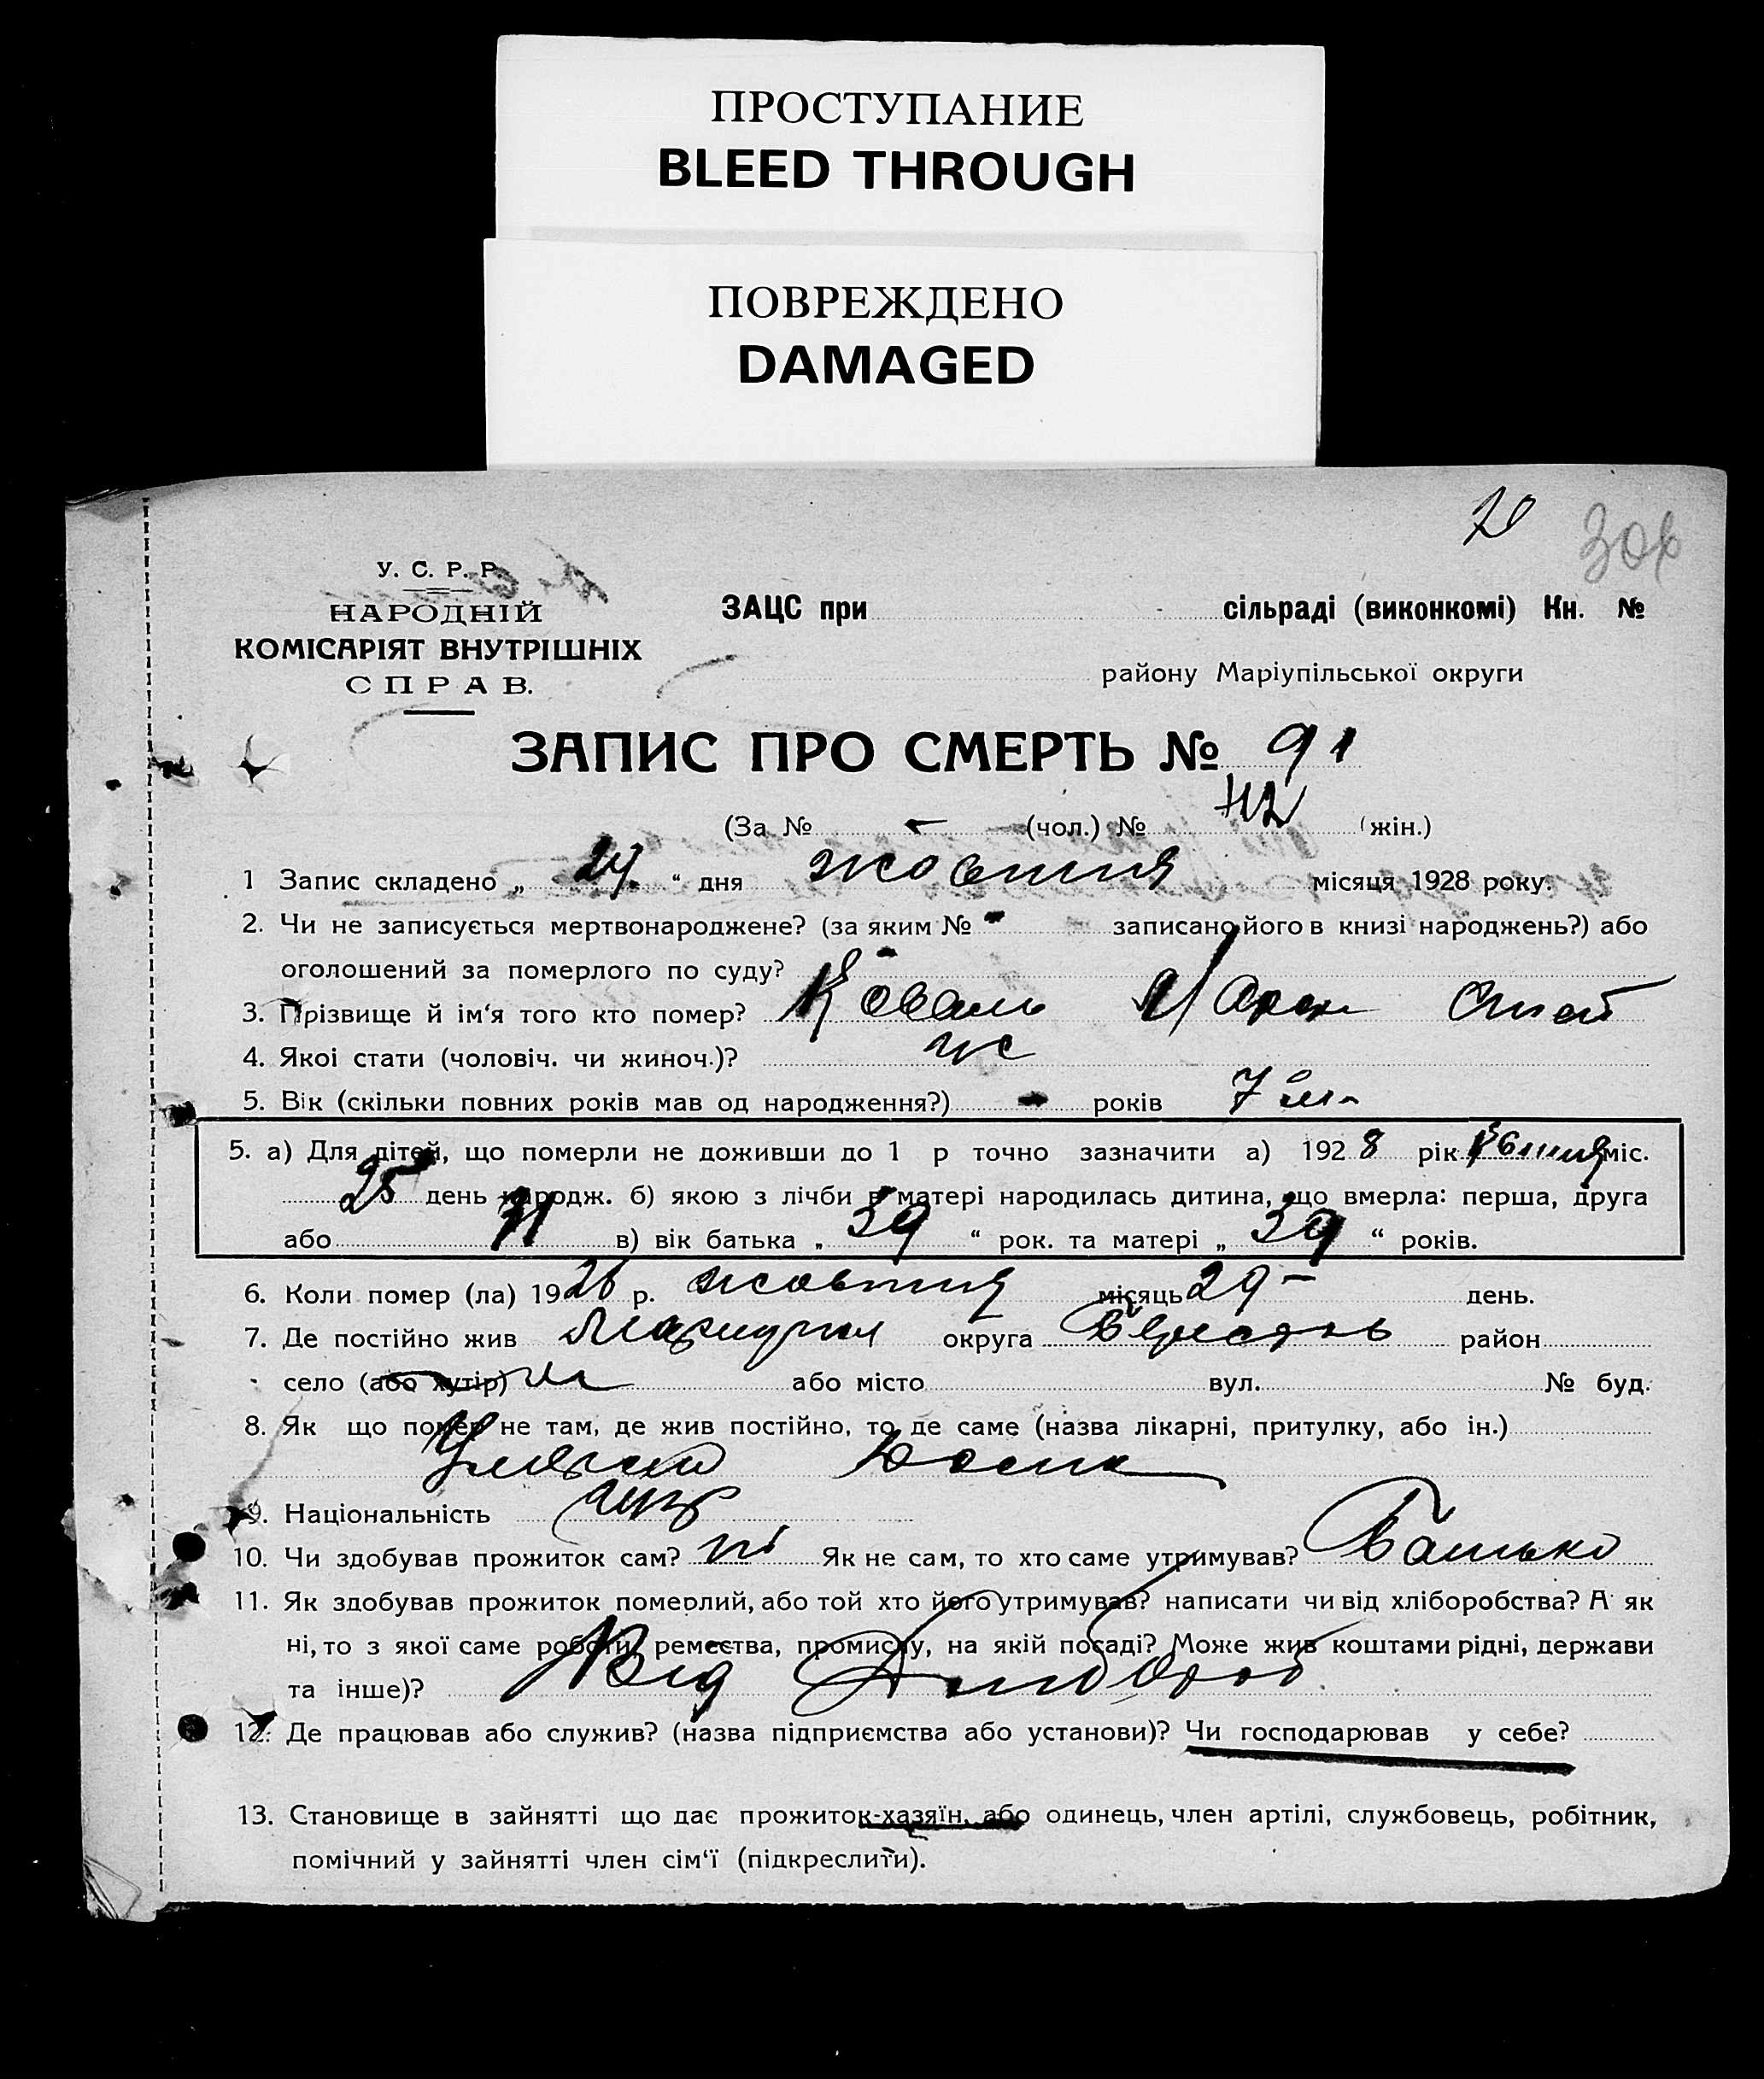 ПРОСТУПАНИЕ
BLEED THROUGH
ПОВРЕЖДЕНО
DAMAGED
У. С. Р. Р.
НАРОДНІЙ
КОМІСАРІЯТ ВНУТРІШНІХ
СПРАВ.
ЗАЦС при сільраді (виконкомі) Кн. №
району Маріупільської округи
ЗАПИС ПРО СМЕРТЬ № 91
(За № - (чол.) № 42 (жін.)
1 Запис складено „ “ дня жовтня місяця 1928 року.
2. Чи не записується мертвонароджене? (за яким № - записано його в книзі народжень?) або
оголошений за померлого по суду? -
3. Прізвище й ім‘я того кто помер? Коваль
4. Якоі стати (чоловіч. чи жиноч.)? ж
5. Вік (скільки повних років мав од народження?) - років 7 м
5. а) Для дітей, що померли не доживши до 1 р точно зазначити а) 1928 рік міс.
25 день народж. б) якою з лічби в матері народилась дитина, що вмерла: перша, друга
або в) вік батька „ 39 “ рок. та матері „ 39 “ років.
6. Коли помер (ла) 1928 р. жовтня місяць 29 - день.
7. Де постійно жив округа район
село (або хутір) або місто вул. № буд.
8. Як що помер не там, де жив постійно, то де саме (назва лікарні, притулку, або ін.)
9. Національність укр
10. Чи здобував прожиток сам? ні Як не сам, то хто саме утримував? Батько
11. Як здобував прожиток померлий, або той хто його утримував? написати чи від хліборобства? А як
ні, то з якої саме роботи, ремества, промислу, на якій посаді? Може жив коштами рідні, держави
та інше)? Від хлібороб
12. Де працював або служив? (назва підприємства або установи)? Чи господарював у себе?
13. Становище в зайнятті що дає прожиток-хазяїн, або одинець, член артілі, службовець, робітник,
помічний у зайнятті член сім‘ї (підкреслити).